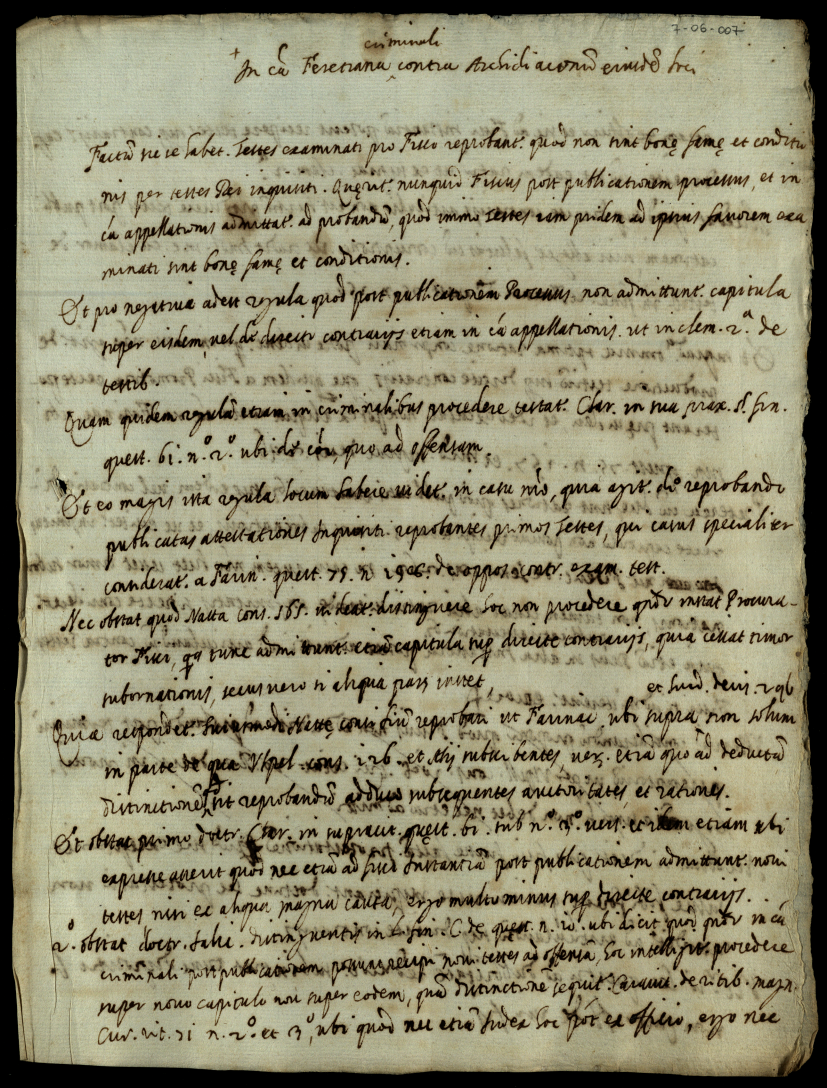 7-06-007
criminali
In cã Feretrana contra Archidiaconũ eiusdẽ loci
Factũ sic se habet. Testes examinati pro Fisco reprobant.r quod non sint bonę famę et conditio
nis per testes Rei inquisiti. Quęrit.r nunquid Fiscus post publicationem processus, et in
cã appellationis admittat.r ad probandũ, quod immo Testes iam pridem ad ipsius favorem exa
minati sint bonę famę et conditionis.
Et pro negativa adest regula quod post publicationẽm Processus non admittunt.r capitula
super eisdem, vel dẽ directe contrarijs etiam in cã appellationis. ut in clem. 2.a de
testib
Quam quidem regulã etiam in criminalibus procedere testat.r Clar. in sua prax. §. fin.
quest. 61. n.o 2.o ubi de quo ad offensam.
Et eo magis ista regula locum habere videt.r in casu nr̃o, quia agit.r de reprobandi
publicatas attestationes Inquisiti reprobantes primos Testes, qui casus specialiter
considerat.r a Farin. quest. 75. n. de oppos. contr. exam. test.
Nec obstat quod Natta cons. 165. videat.r distinguere hoc non procedere qñdr instat Procura-
tor Fisci, q̃a tunc admittunt.r etiã capitula sup directe contrarijs, quia cessat timor
subornationis, secus vero si aliqua pars instet, et Surd. decis. 296
Quia respondet.r Nattę consiliũ reprobari ut Farinac. ubi supra non solum
in parte de qua cons. 126. et Alij subscribentes ver. etiã quo ad deductã
distinctionẽ, sit reprobandũ adduco subsequentes auctoritates, et rationes.
Et obstat primo doctr. Clar. in supracit. quęst. 61. sub n.o 3.o vers. etiam ubi
expresse asserit quod nec etiã ad Instantiã post publicationem admittunt.r novi
testes nisi ex aliqua magna causa, ergo multo minus sup directe contrarijs.
2.o obstat doctr. Salic. distinguentis in l. fin. C. de quęst. n. 10. ubi dicit quod qñdr in cã
criminali post publicationem possunt recipi novi testes ad offensã, hoc intelligit.r procedere
super novo capitulo non super eodem, quã distinctionẽ sequit.r de ritib. magn.
Cur. rit. 71 n. 2.o et 3.o, ubi quod nec etiã Iudex hoc põt ex officio, ergo nec